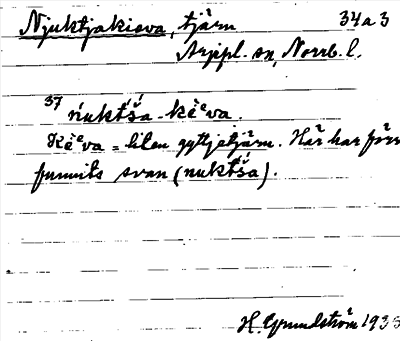 Njuktjakieva, tjärn 34a3
Arjepl. sn, Norrb. l.
37 ńuktša-kèᵉva.
Kèᵉva = liten gyttjetjärn. Här har förr
funnits svan (nuktša).
H. Grundström